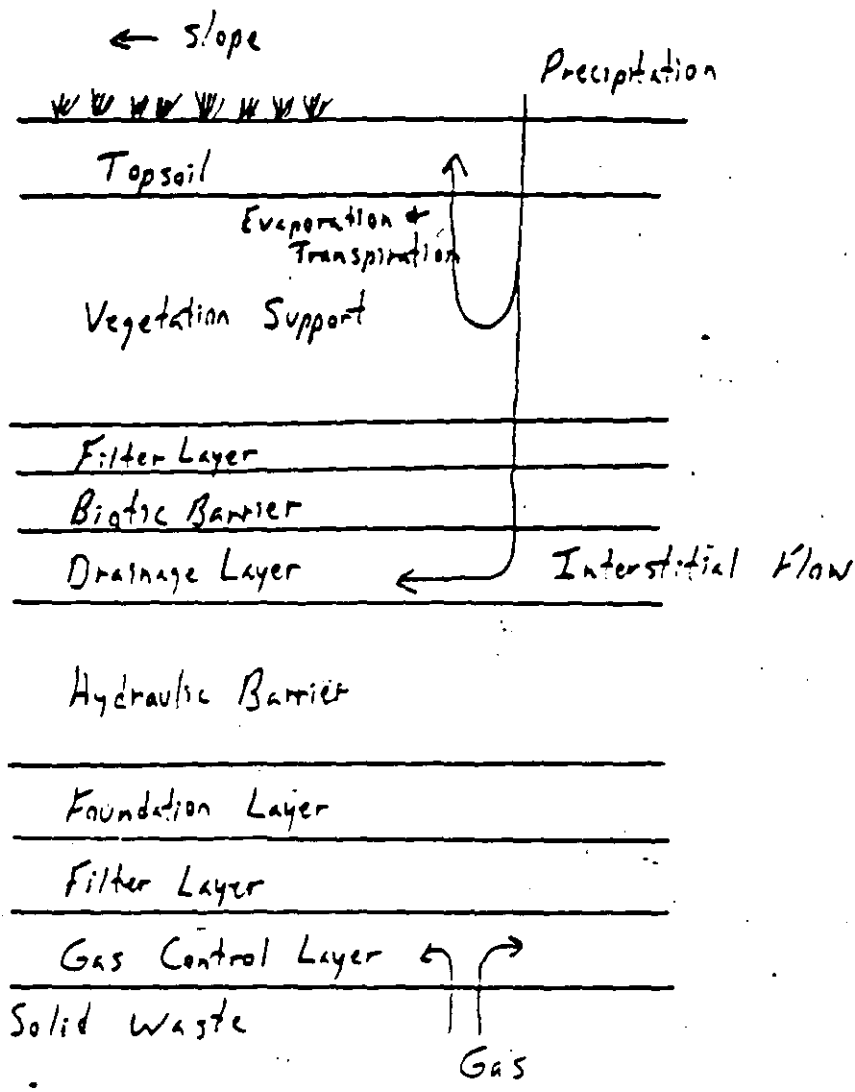 ← Slope
Precipitation
Topsoil
Evaporation +
Transpiration
Vegetation Support
Filter Layer
Biotic Barrier
Drainage Layer
Interstitial Flow
Hydraulic Barrier
Foundation Layer
Filter Layer
Gas Control Layer
Solid Waste
Gas